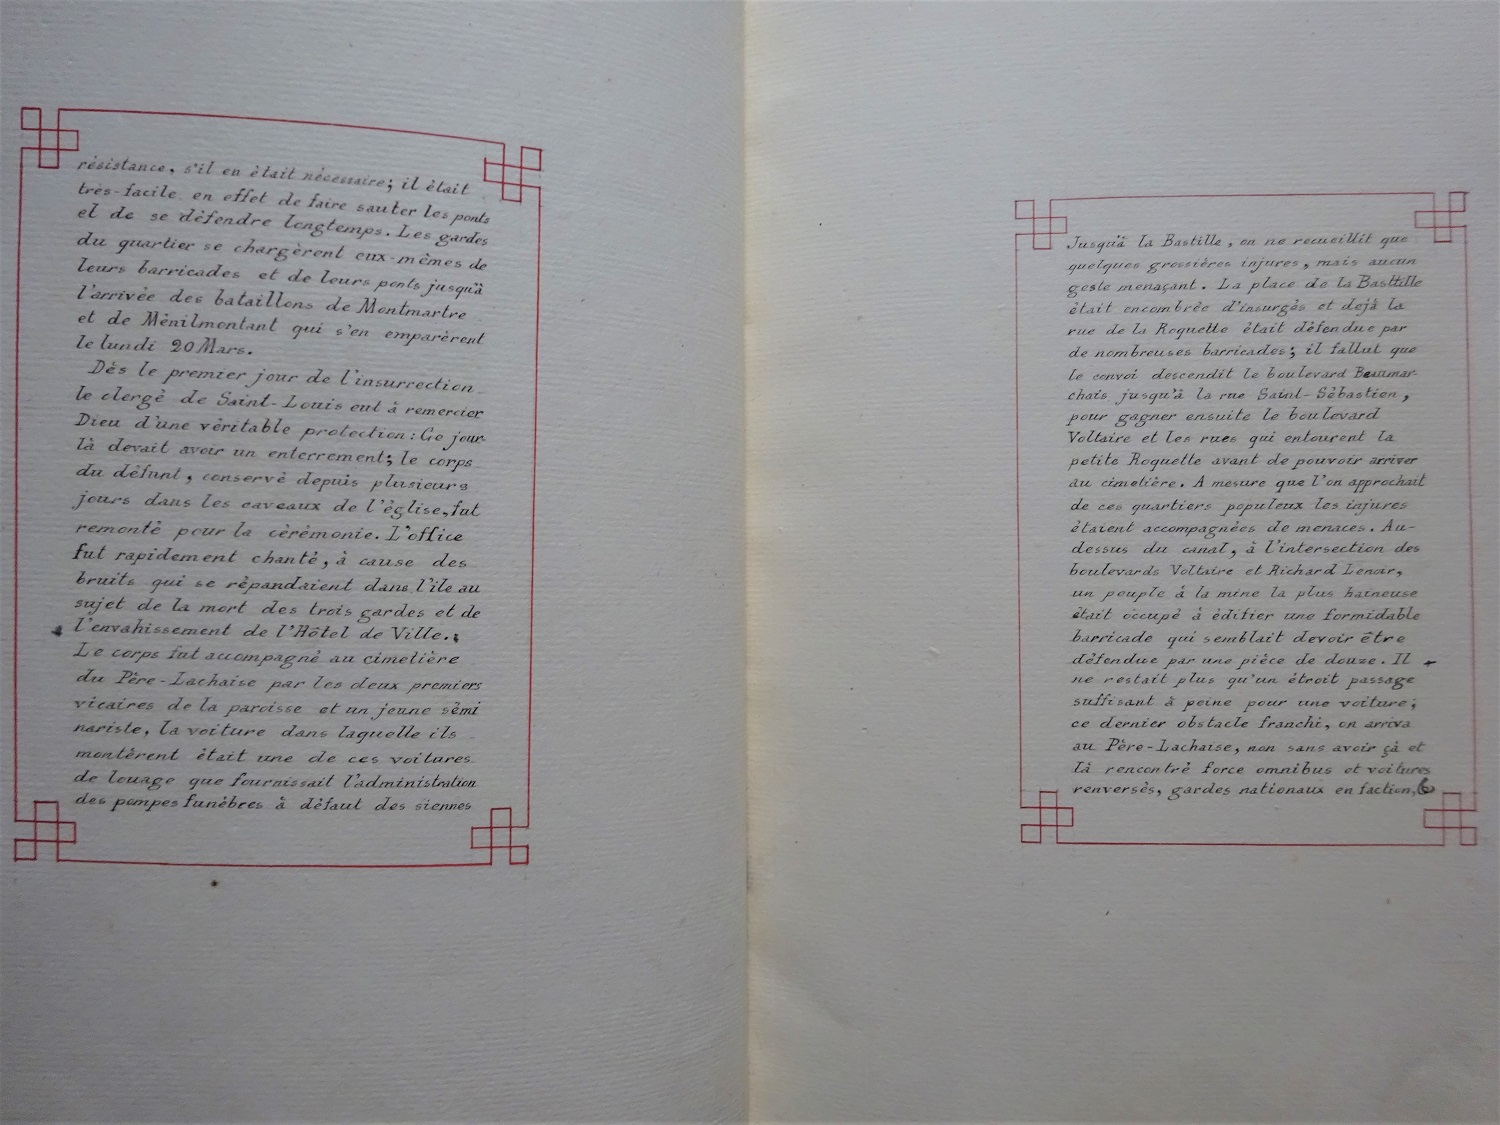 résistance, s'il en était nécessaire; il était
très-facile en effet de faire sauter les ponts
et de se défendre longtemps. Les gardes
du quartier se chargèrent eux-mêmes de
leurs barricades et de leurs ponts jusqu'à
l'arrivée des bataillons de Montmartre
et de Ménilmontant qui s'en emparèrent
le lundi 20 Mars.
Dès le premier jour de l'insurrection
le clergé de Saint-Louis eut à remercier
Dieu d'une véritable protection: Ce jour-
là devait avoir un enterrement; le corps
du défunt, conservé depuis plusieurs
jours dans les caveaux de l'église, fut
remonté pour la cérémonie. L'office
fut rapidement chanté, à cause des
bruits qui se répandaient dans l'île au
sujet de la mort des trois gardes et de
l'envahissement de l'Hôtel de Ville.
Le corps fut accompagné au cimetière
du Père-Lachaise par les deux premiers
vicaires de la paroisse et un jeune sémi
nariste, la voiture dans laquelle ils
montèrent était une de ces voitures
de louage que fournissait l'administration
des pompes funèbres à défaut des siennes
Jusqu'à la Bastille, on ne recueillit que
quelques grossières injures, mais aucun
geste menaçant. La place de la Basttille
était encombrée d'insurgés et dejà la
rue de la Roquette était défendue par
de nombreuses barricades; il fallut que
le convoi descendit le boulevard Beaumar-
chais jusqu'à la rue Saint-Sébastien,
pour gagner ensuite le boulevard
Voltaire et les rues qui entourent la
petite Roquette avant de pouvoir arriver
au cimetière. A mesure que l'on approchait
de ces quartiers populeux les injures
étaient accompagnées de menaces. Au-
dessus du canal, à l'intersection des
boulevards Voltaire et Richard Lenoir,
un peuple à la mine la plus haineuse
était occupé à édifier une formidable
barricade qui semblait devoir être
défendue par une pièce de douze. Il
ne restait plus qu'un étroit passage
suffisant à peine pour une voiture;
ce dernier obstacle franchi, on arriva
au Père-Lachaise, non sans avoir çà et
là rencontré force omnibus et voitures
renversés, gardes nationaux en faction,